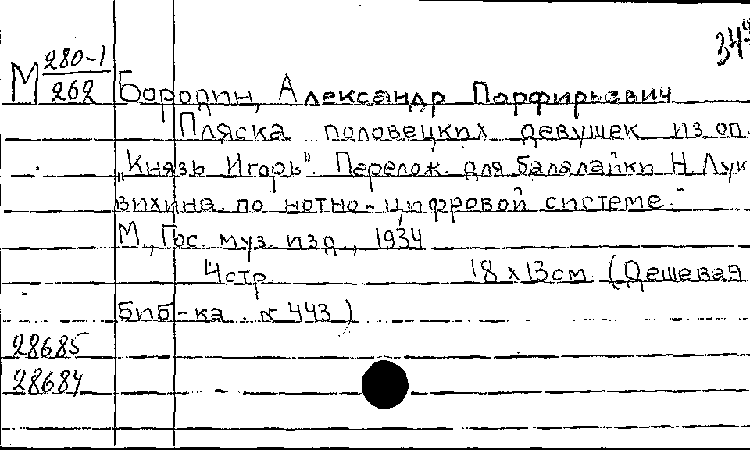 344
М 280-1
262 Бородин, Александр Порфирьевич
Пляска половецких девушек из оп.
„Князь Игорь". Перелож. для балалайки Н. Лук
вихина по нотно-цифровой системе.
М., Гос. муз. изд., 1934
4 стр. 18 х 13 см (Дешевая
биб-ка. 443)
28685
28684